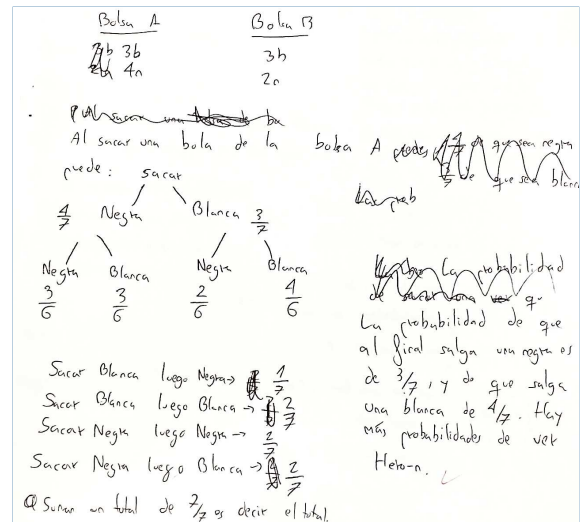 Bolsa A
3b
4n
Bolsa B
3b
2n
Al sacar una bola de la bolsa A
puede: sacar
4/7 Negra Blanca 3/7
Negra Blanca Negra Blanca
3/6 3/6 2/6 4/6
Sacar Blanca luego Negra → 1/7
Sacar Blanca luego Blanca → 2/7
Sacar Negra luego Negra → 2/7
Sacar Negra luego Blanca → 2/7
Suman un total de 7/7 es decir el total.
La probabilidad de que
al final salga una negra es
de 3/7, y de que salga
una blanca de 4/7. Hay
más probabilidades de ver